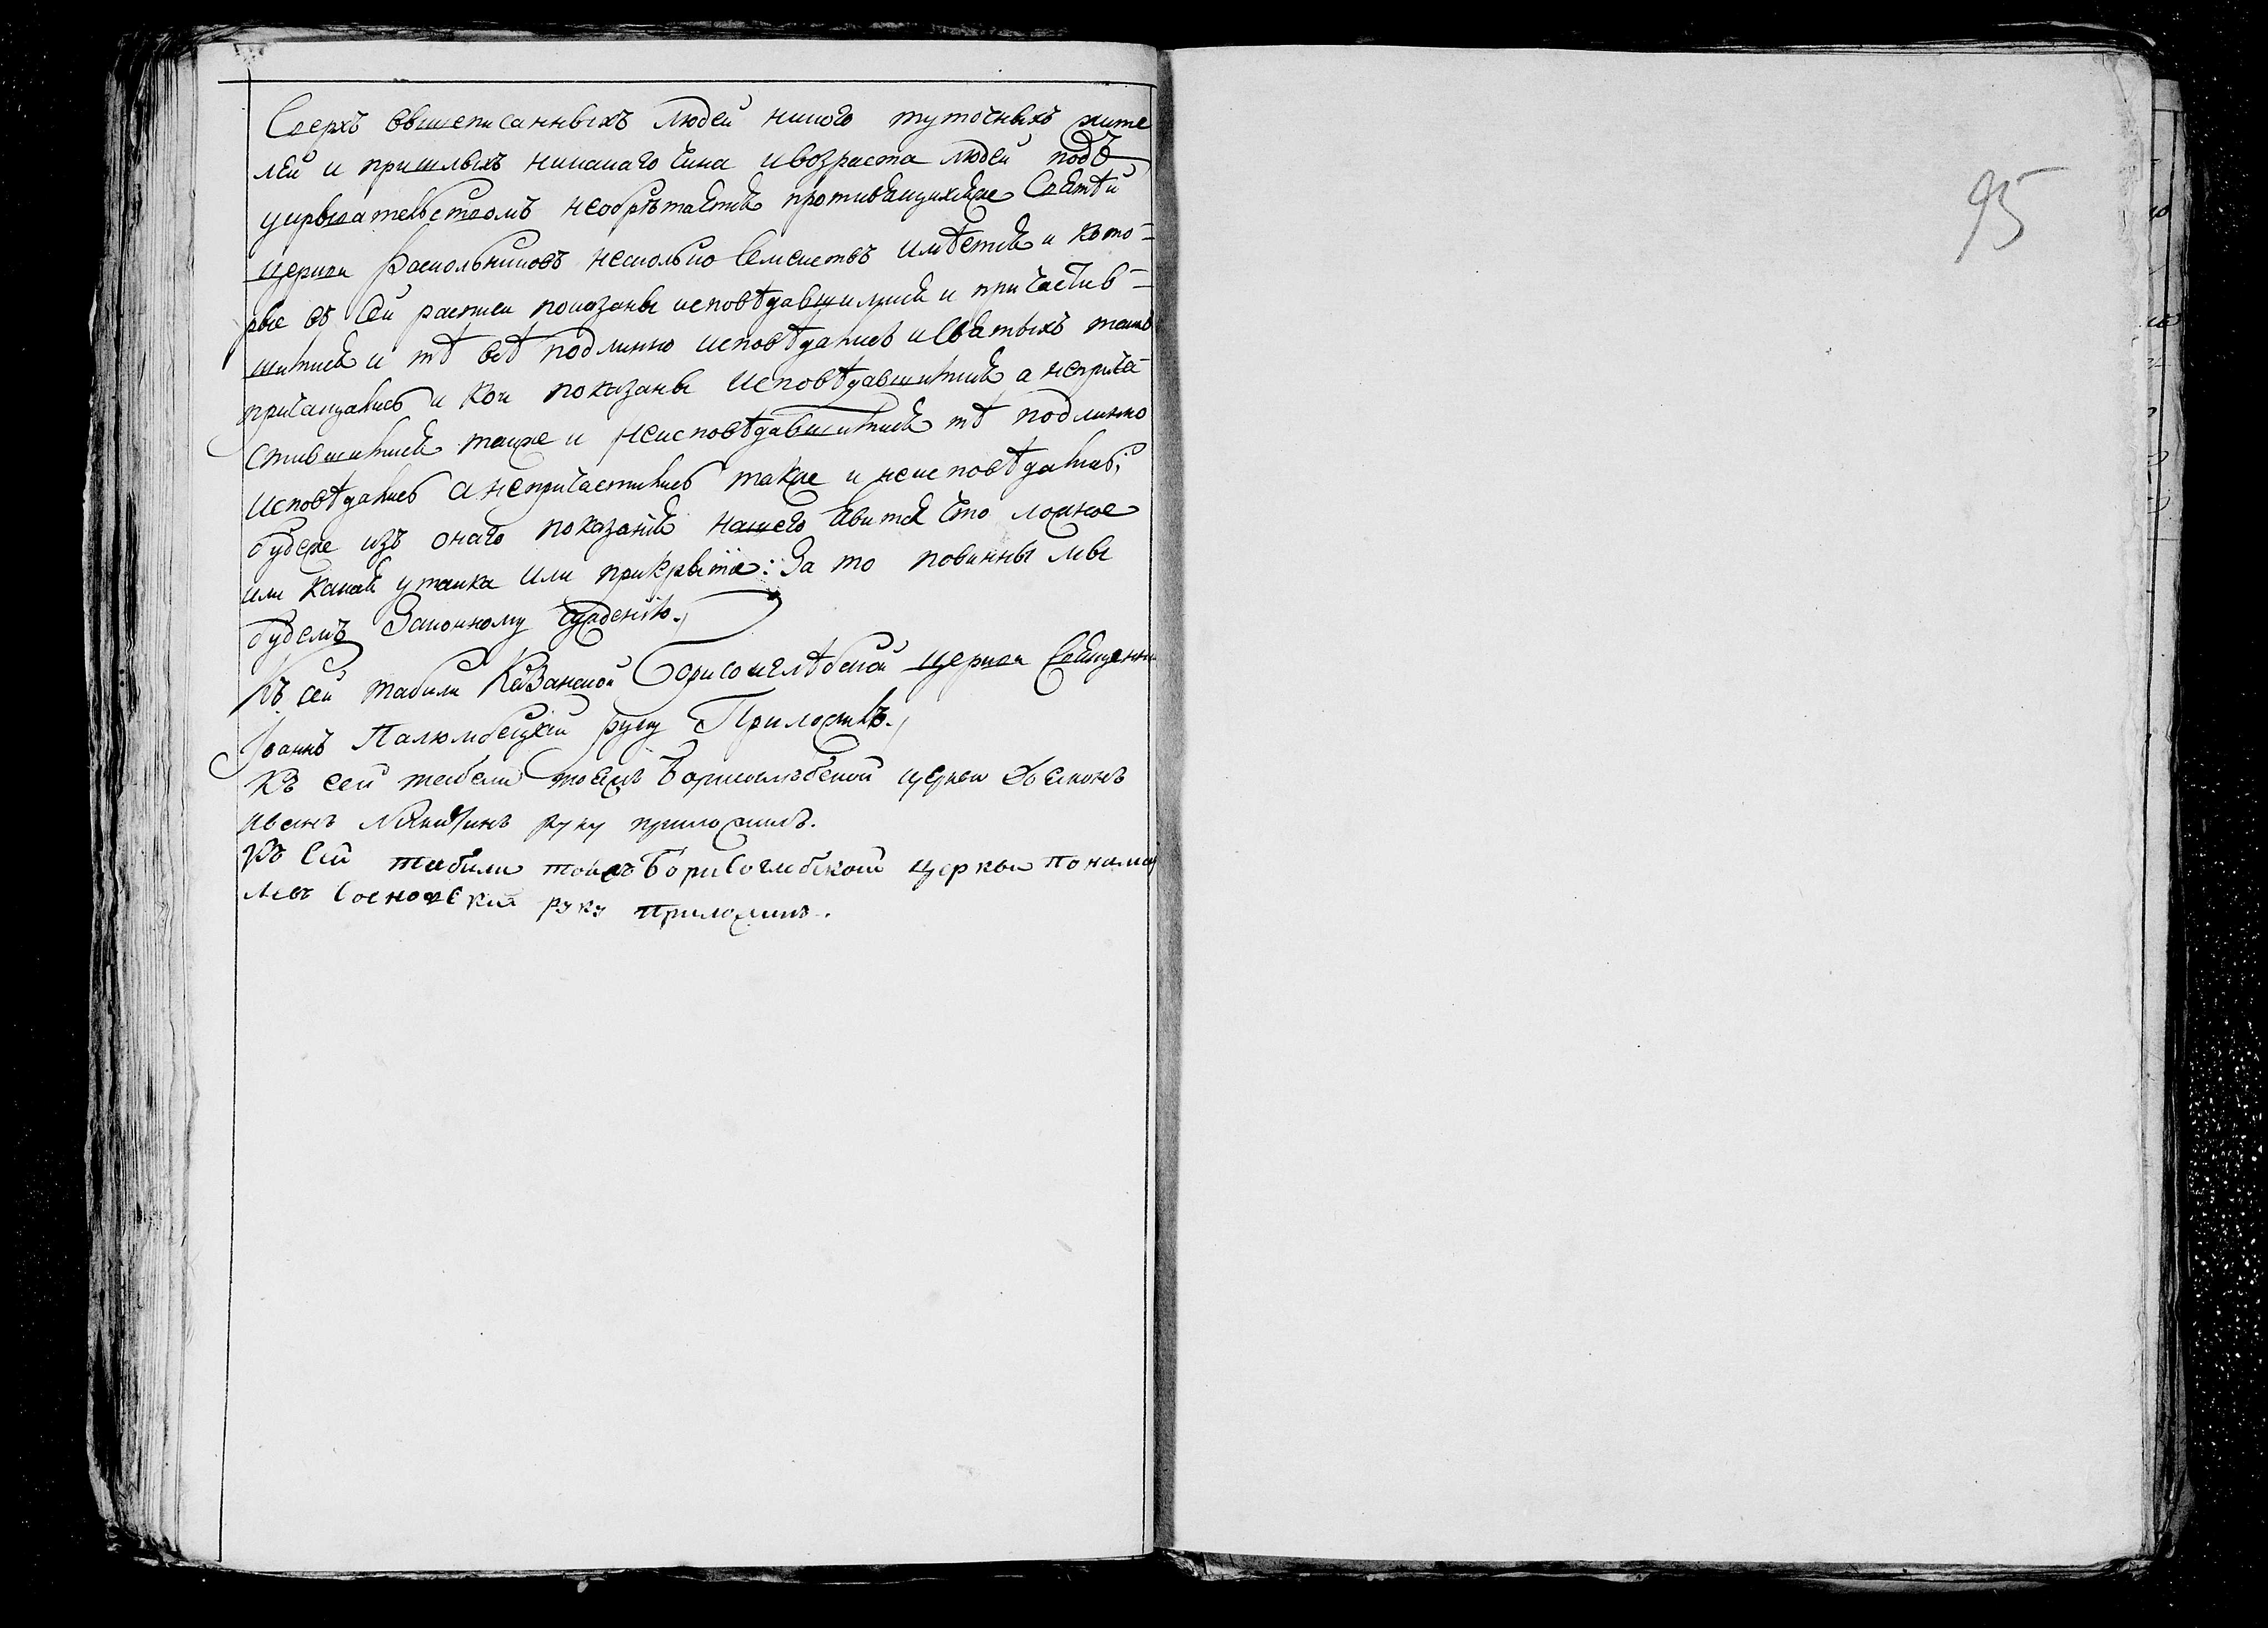 Сверхъ вышеписанныхъ людей никого туточныхъ жите
лей и пришлыхъ никакаго чина и возраста людей подъ
укрывательствомъ необрѣтается противящихсяже святѣй
церкви раскольниковъ несколько семействъ имѣется и кото-
рые въ сей росписи показаны исповѣдавшимися и причастив-
шимися и тѣ всѣ подлинно исповѣдались и святыхъ таинъ
причащались и кои показаны исповѣдавшимися а неприча-
стившимися также и неисповѣдавшимися тѣ подлинно
исповѣдались а непричастились также и неисповѣдались;
будеже изъ онаго показанія нашего явится что ложное
или какая утайка или прикрытие: За то повинны мы
будемъ Законному суждению.
Къ сей табели Казанской Борисоглѣбской церкви Священни
Іоаннъ руку Приложилъ.
Къ сей табели тоежъ Борисоглебской церкви дьяконъ
Иванъ руку приложилъ.
Къ сей табели тойжъ Борисоглебской церкви понамар
Левъ Сосновский руку приложилъ.
95